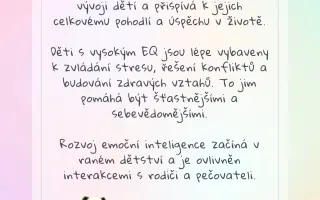 vývoji dětí a přispívá k jejich
celkovému pohodlí a úspěchu v životě.
Děti s vysokým EQ jsou lépe vybaveny
k zvládání stresu, řešení konfliktů a
budování zdravých vztahů. To jim
pomáhá být šťastnějšími a
sebevědomějšími.
Rozvoj emoční inteligence začíná v
raném dětství a je ovlivněn
interakcemi s rodiči a pečovateli.